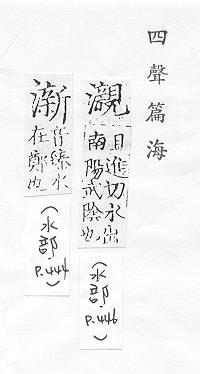 四聲篇海
且進切水出
南陽武陰也
(水部 P.446)
音溱水
在鄭也
(水部 P.444)